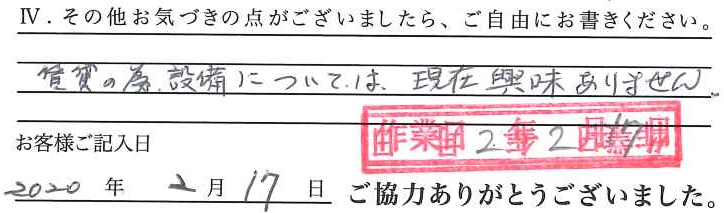 Ⅳ．その他お気づきの点がございましたら、ご自由にお書きください。
賃貸の為、設備については、現在興味ありません。
お客様ご記入日
作業日 2年2月17日
2020年 2月17日 ご協力ありがとうございました。